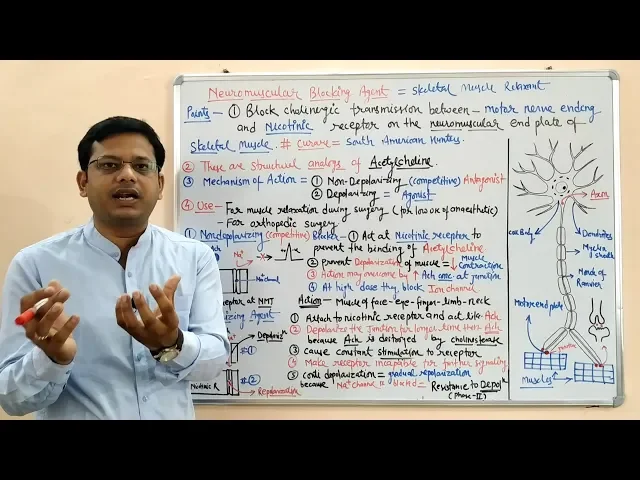 Neuromuscular Blocking Agent = Skeletal Muscle Relaxant
Points - ① Block cholinergic transmission between - motor nerve ending
and Nicotinic receptor on the neuromuscular end plate of
Skeletal Muscle. # Curare = South American Hunters.
② These are structural analogs of Acetylcholine.
③ Mechanism of Action = ① Non-Depolarizing (competitive) Antagonist
② Depolarizing = Agonist
④ Use - For muscle relaxation during surgery (for low dk of anaesthetic)
- For orthopedic surgery
① Nondepolarizing (competitive) Blocker - ① Act at Nicotinic receptor to
prevent the binding of Acetylcholine
② Prevent Depolarization of muscle = ↓ Muscle Contraction
③ Action may overcome by ↑ Ach conc. at junction
④ At high dose they block Ion channel
Na⁺
channel
receptor at NMJ
Action - Muscle of face - eye - finger - limb - neck
izing Agent
① Attach to nicotinic receptor and act like Ach
② Depolarize the junction for longer time then Ach
because Ach is destroyed by cholinesterase
③ cause constant stimulation to receptor
④ Make receptor incapable for further signaling
⑤ conti depolarization = gradual repolarization
because Na⁺ channel is blocked = Resistance to Depolⁿ
(Phase-II)
#①
#②
Nicotinic R
Repolarization
Axon
Cell Body
Dendrites
Myelin
sheath
Node of
Ranvier
Motor end plate
Muscles